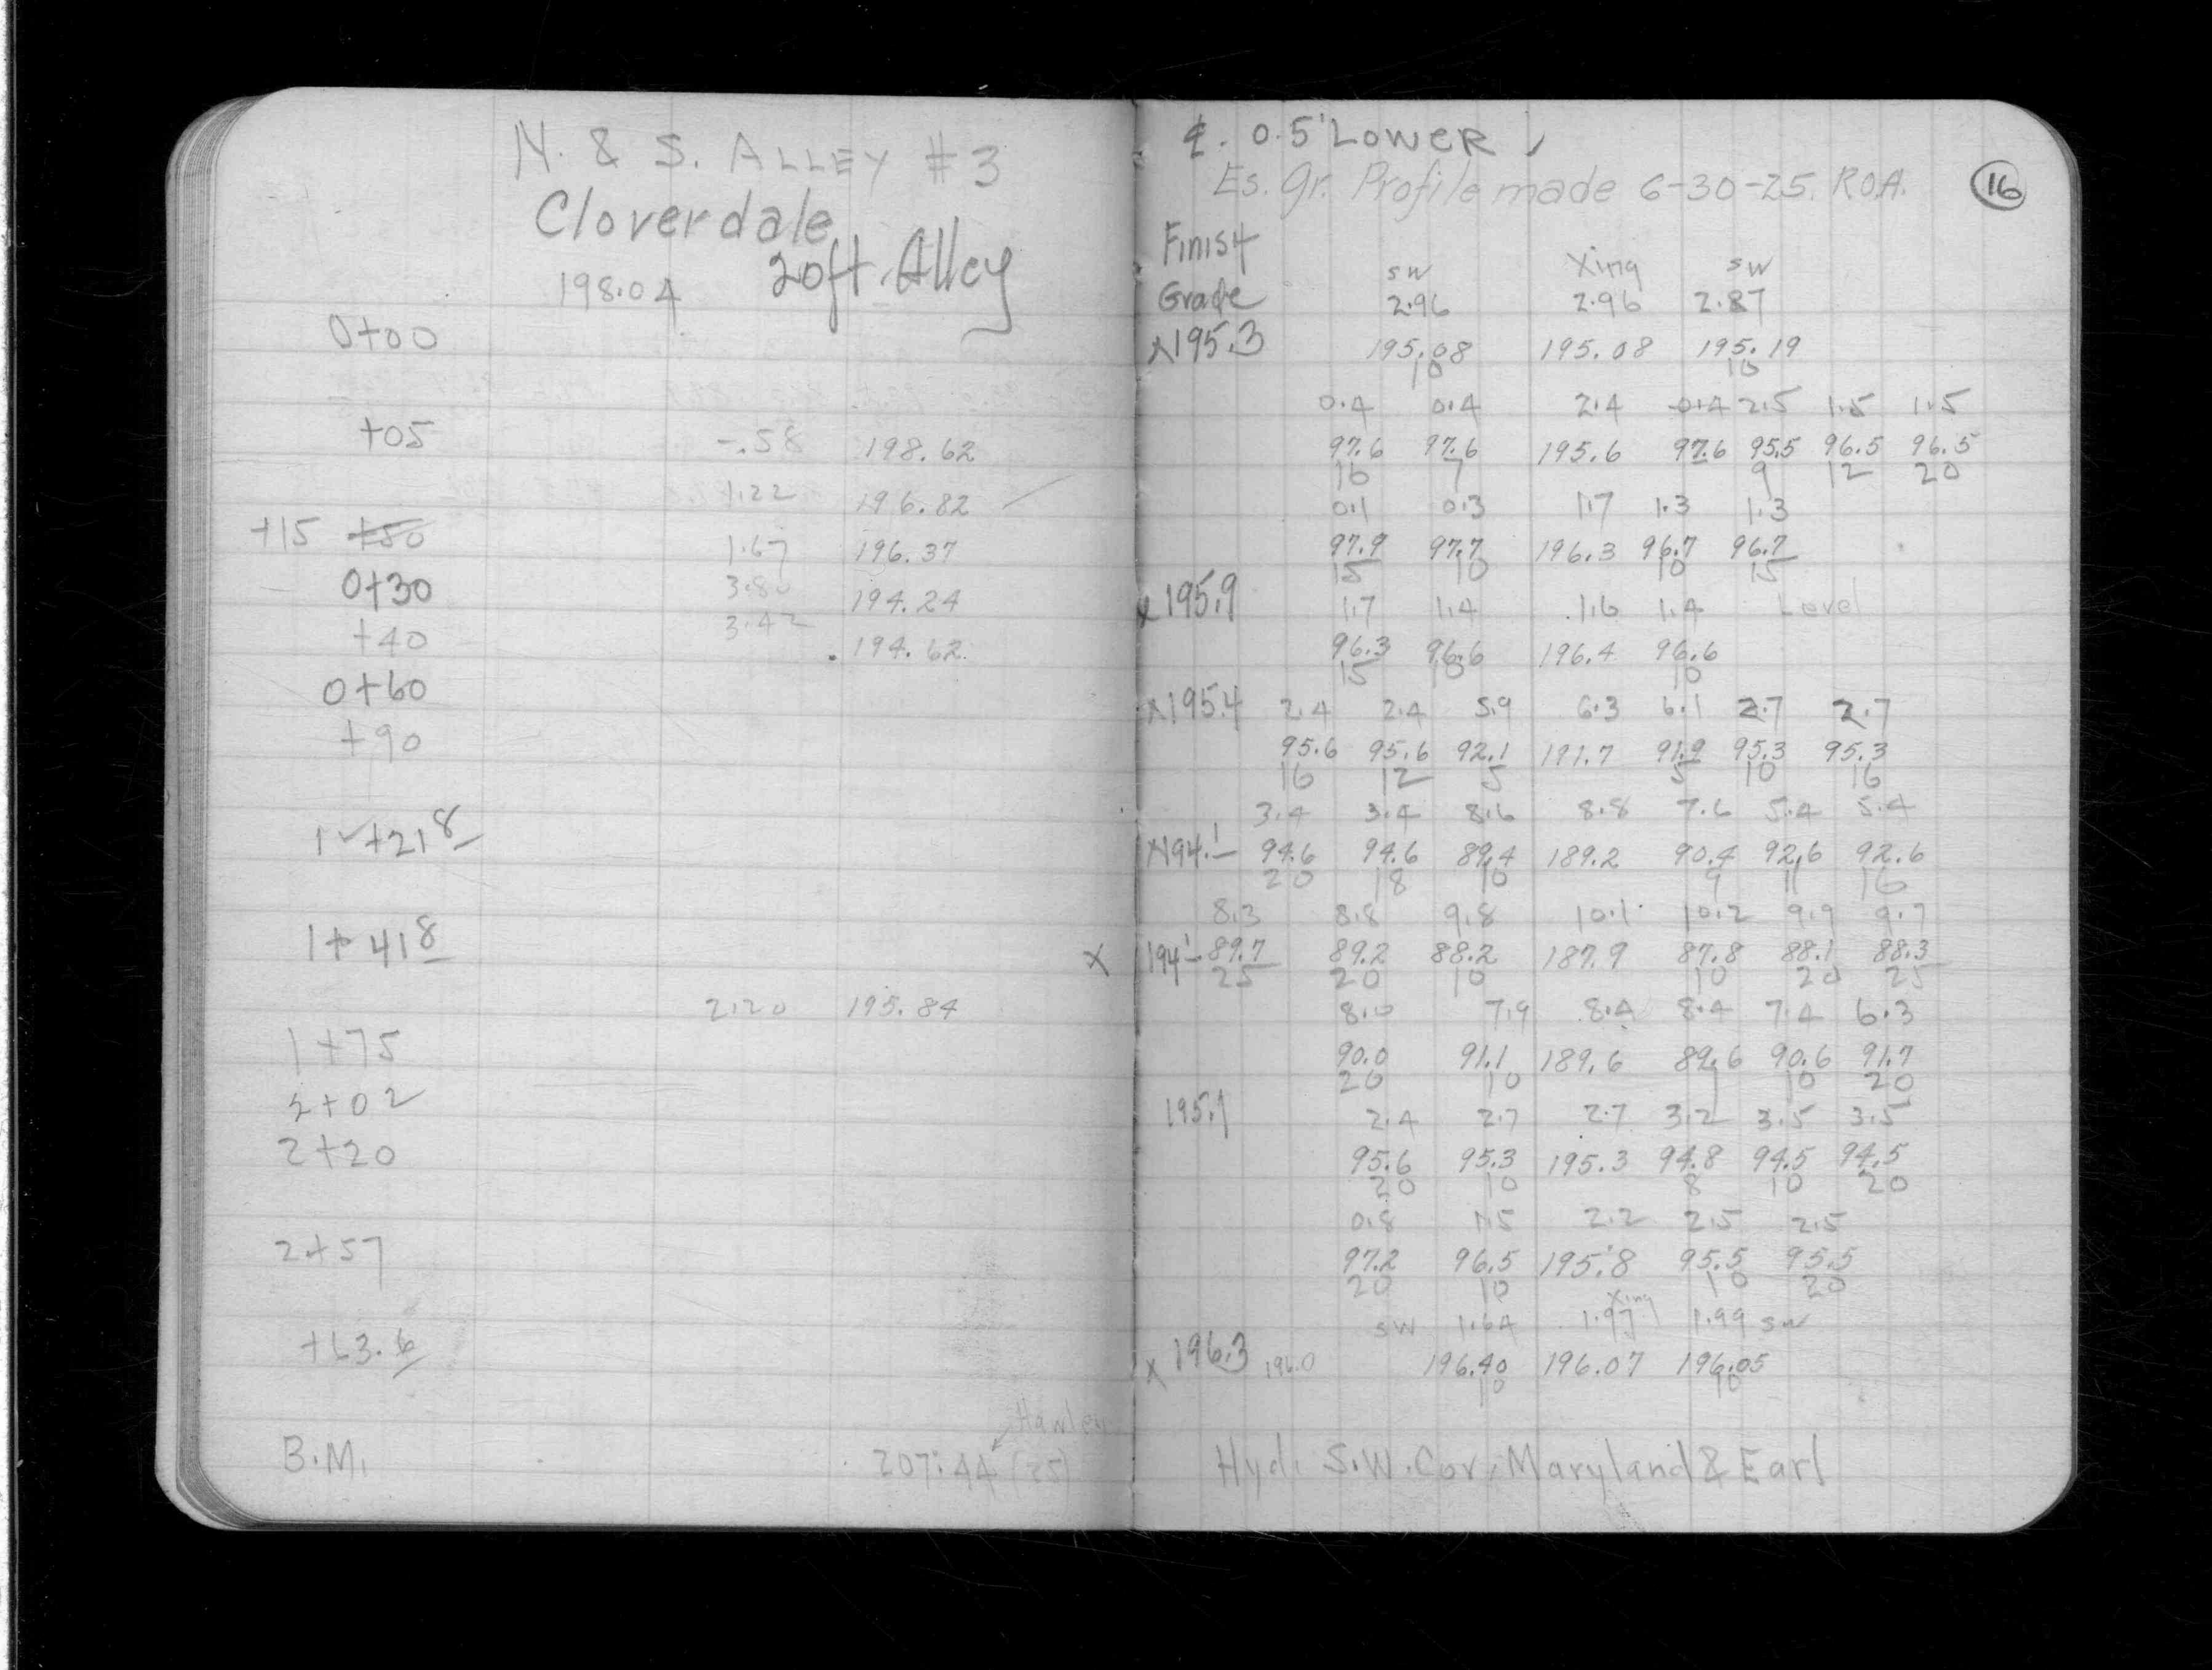 N. & S. ALLEY # 3
Cloverdale
198.04 20ft. Alley
0+00
+05 -.58 198.62
1.22 196.82
+15 +50 1.67 196.37
0+30 3.80 194.24
+40 3.42 194.62
0+60
+90
1+21 8
1+41 8
2.20 195.84
1+75
2+02
2+20
2+57
+63.6
B.M. 207.44 (25)
¢. 0.5' LOWER
Es. Gr. Profile made 6-30-25. R.O.A. 16
Finish
SW Xing SW
Grade 2.96 2.96 2.87
195.3 195.08 195.08 195.19
10 10
0.4 0.4 2.4 0.4 2.5 1.5 1.5
97.6 97.6 195.6 97.6 95.5 96.5 96.5
10 7 9 12 20
0.1 0.3 1.7 1.3 1.3
97.9 97.7 196.3 96.7 96.7
15 10 10 15
x 195.9 1.7 1.4 1.6 1.4 Level
96.3 96.6 196.4 96.6
15 10 10
x 195.4 2.4 2.4 5.9 6.3 6.1 2.7 2.7
95.6 95.6 92.1 191.7 91.9 95.3 95.3
16 12 5 5 10 16
3.4 3.4 8.6 8.8 7.6 5.4 5.4
x 194.1 94.6 94.6 89.4 189.2 90.4 92.6 92.6
20 18 10 9 11 16
8.3 8.8 9.8 10.1 10.2 9.9 9.7
x 194 1 89.7 89.2 88.2 187.9 87.8 88.1 88.3
25 20 10 10 20 25
8.0 7.9 8.4 8.4 7.4 6.3
90.0 91.1 189.6 89.6 90.6 91.7
20 10 1 10 20
195.1 2.4 2.7 2.7 3.2 3.5 3.5
95.6 95.3 195.3 94.8 94.5 94.5
20 10 8 10 20
0.8 1.5 2.2 2.5 2.5
97.2 96.5 195.8 95.5 95.5
20 10 10 20
Xing
SW 1.64 1.97 1.99 SW
x 196.3 196.0 196.40 196.07 196.05
10 10
Hyd. S.W. Cor. Maryland & Earl